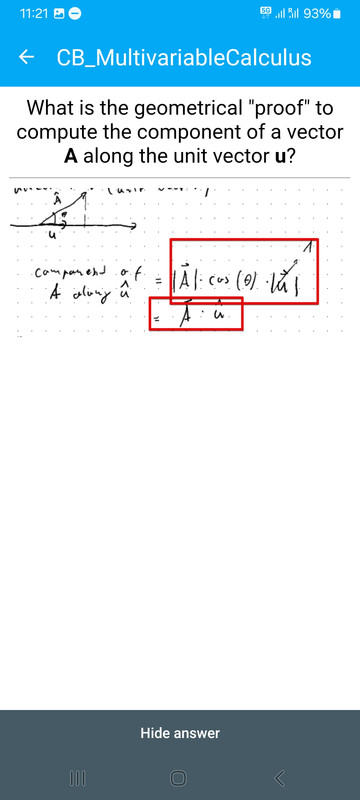 11:21 5G 93%
CB_MultivariableCalculus
What is the geometrical "proof" to
compute the component of a vector
A along the unit vector u?
A
u
component of
A along û
= |A⃗| · cos (θ) · |u⃗| 1
= A · û
Hide answer